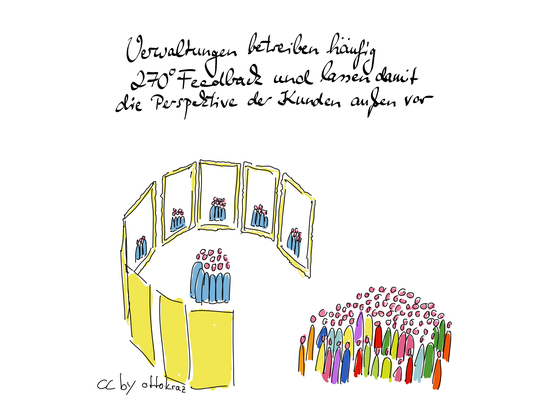 Verwaltungen betreiben häufig
270° Feedback und lassen damit
die Perspektive der Kunden außen vor
CC by ottokraz